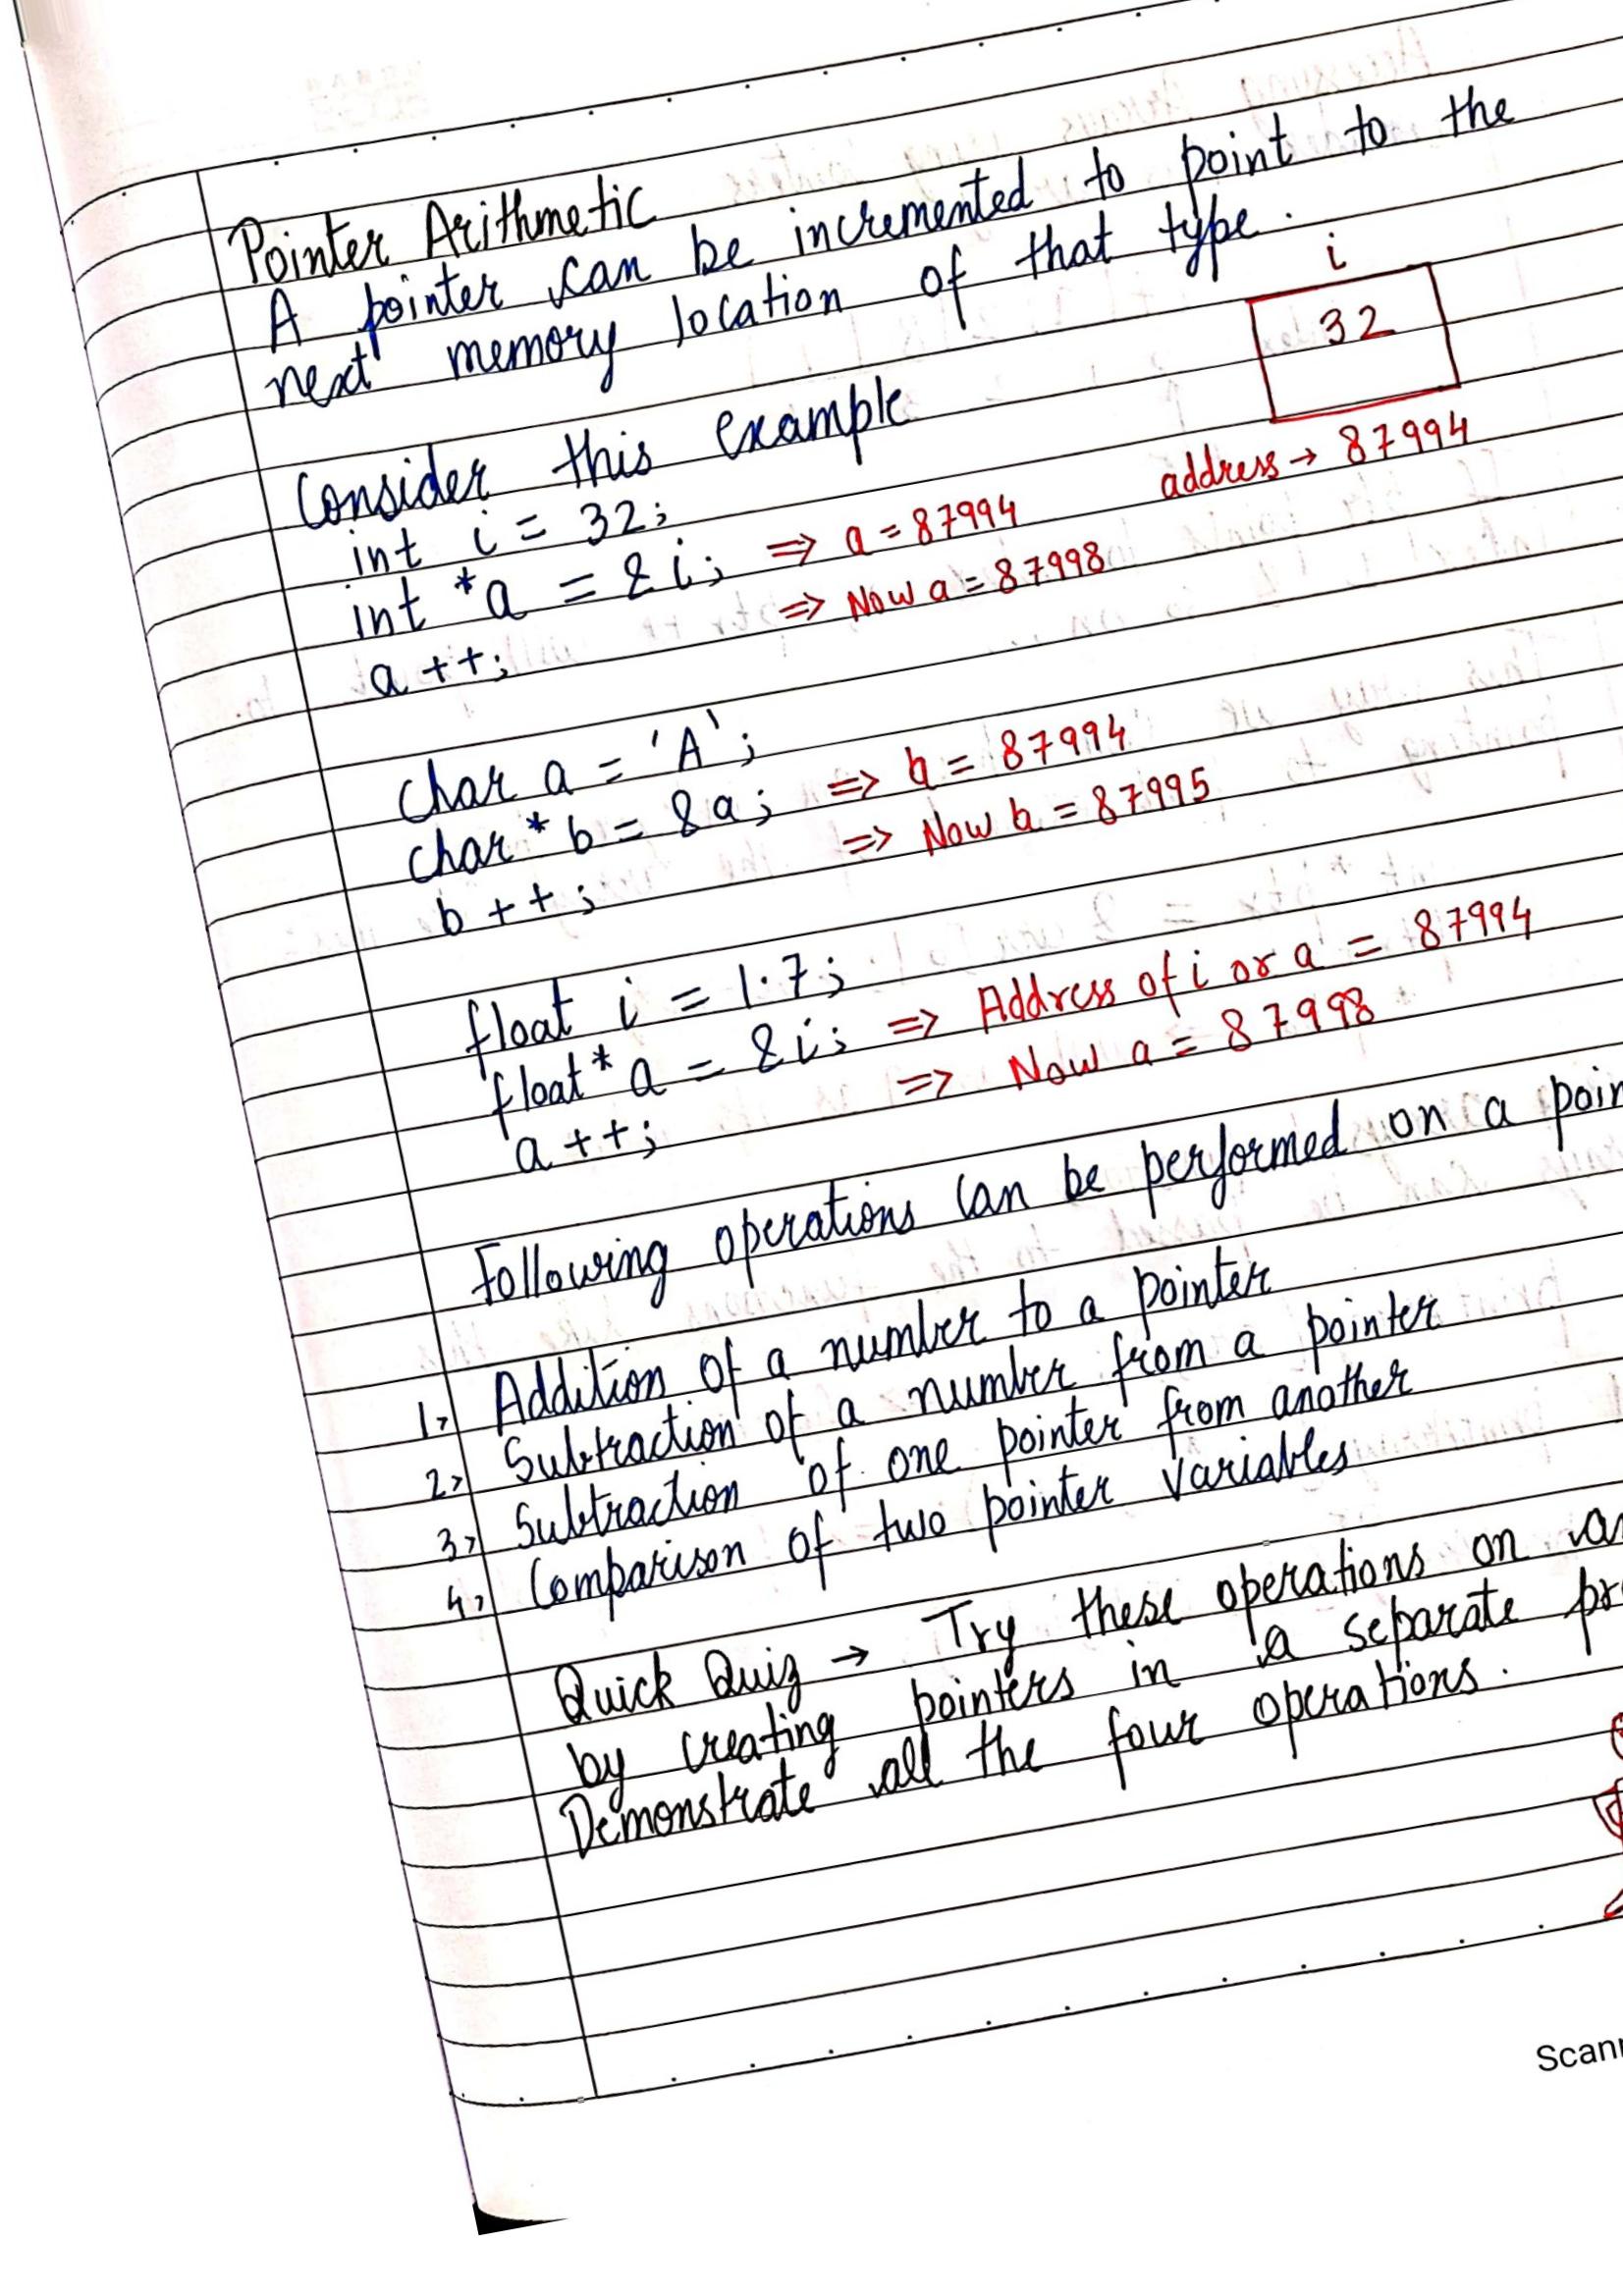 Pointer Arithmetic
A pointer can be incremented to point to the
next memory location of that type.
i
32
address → 87994
Consider this example
int i = 32;
int *a = &i; ⇒ a = 87994
a ++; ⇒ Now a = 87998
char a = 'A';
char * b = &a; ⇒ b = 87994
b ++; ⇒ Now b = 87995
float i = 1.7;
float* a = &i; ⇒ Address of i or a = 87994
a ++; ⇒ Now a = 87998
Following operations can be performed on a
1> Addition of a number to a pointer
2> Subtraction of a number from a pointer
3> Subtraction of one pointer from another
4> Comparison of two pointer variables
Quick Quiz → Try these operations on
by creating pointers in a separate
Demonstrate all the four operations.